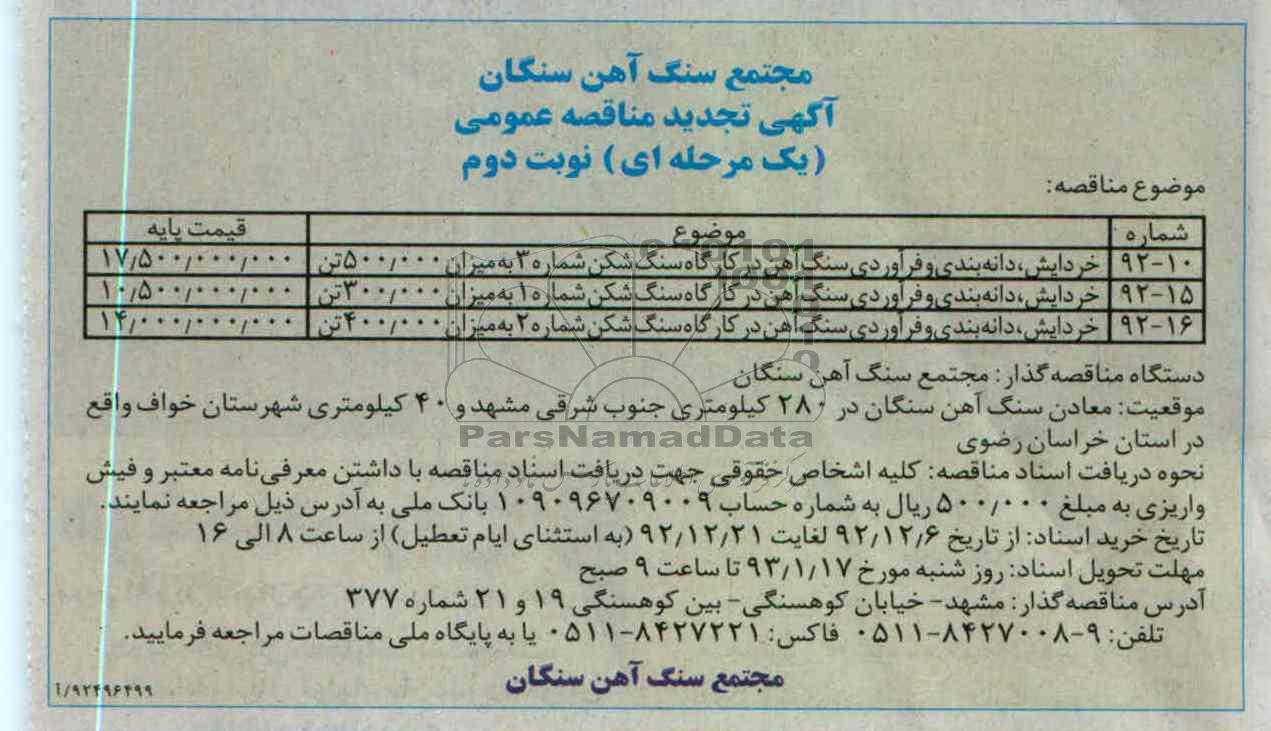 مجتمع سنگ آهن سنگان
آگهی تجدید مناقصه عمومی
(یک مرحله ای) نوبت دوم
موضوع مناقصه:
شماره موضوع قیمت پایه
۹۲-۱۰ خردایش، دانه‌بندی و فرآوردی سنگ آهن در کارگاه سنگ شکن شماره ۳ به میزان ۵۰۰/۰۰۰ تن ۱۷/۵۰۰/۰۰۰/۰۰۰
۹۲-۱۵ خردایش، دانه‌بندی و فرآوردی سنگ آهن در کارگاه سنگ شکن شماره ۱ به میزان ۳۰۰/۰۰۰ تن ۱۰/۵۰۰/۰۰۰/۰۰۰
۹۲-۱۶ خردایش، دانه‌بندی و فرآوردی سنگ آهن در کارگاه سنگ شکن شماره ۲ به میزان ۴۰۰/۰۰۰ تن ۱۴/۰۰۰/۰۰۰/۰۰۰
دستگاه مناقصه گذار: مجتمع سنگ آهن سنگان
موقعیت: معادن سنگ آهن سنگان در ۲۸۰ کیلومتری جنوب شرقی مشهد و ۴۰ کیلومتری شهرستان خواف واقع
در استان خراسان رضوی
ParsNamadData
نحوه دریافت اسناد مناقصه: کلیه اشخاص حقوقی جهت دریافت اسناد مناقصه با داشتن معرفی‌نامه معتبر و فیش
واریزی به مبلغ ۵۰۰/۰۰۰ ریال به شماره حساب ۱۰۹۰۹۶۷۰۹۰۰۹ بانک ملی به آدرس ذیل مراجعه نمایند.
تاریخ خرید اسناد: از تاریخ ۹۲/۱۲/۶ لغایت ۹۲/۱۲/۲۱ (به استثنای ایام تعطیل) از ساعت ۸ الی ۱۶
مهلت تحویل اسناد: روز شنبه مورخ ۹۳/۱/۱۷ تا ساعت ۹ صبح
آدرس مناقصه گذار: مشهد- خیابان کوهسنگی- بین کوهسنگی ۱۹ و ۲۱ شماره ۳۷۷
تلفن: ۹-۸۴۲۷۰۰۸-۰۵۱۱ فاکس: ۸۴۲۷۲۲۱-۰۵۱۱ یا به پایگاه ملی مناقصات مراجعه فرمایید.
مجتمع سنگ آهن سنگان
۹۲۴۹۶۴۹۹/آ